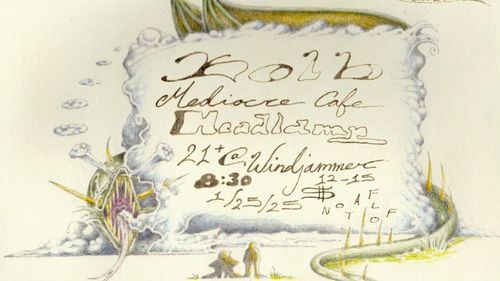 Mediocre Cafe
Headlamp
21+ @ Windjammer
8:30 12-15
1/25/25 $ NOTAFLOF